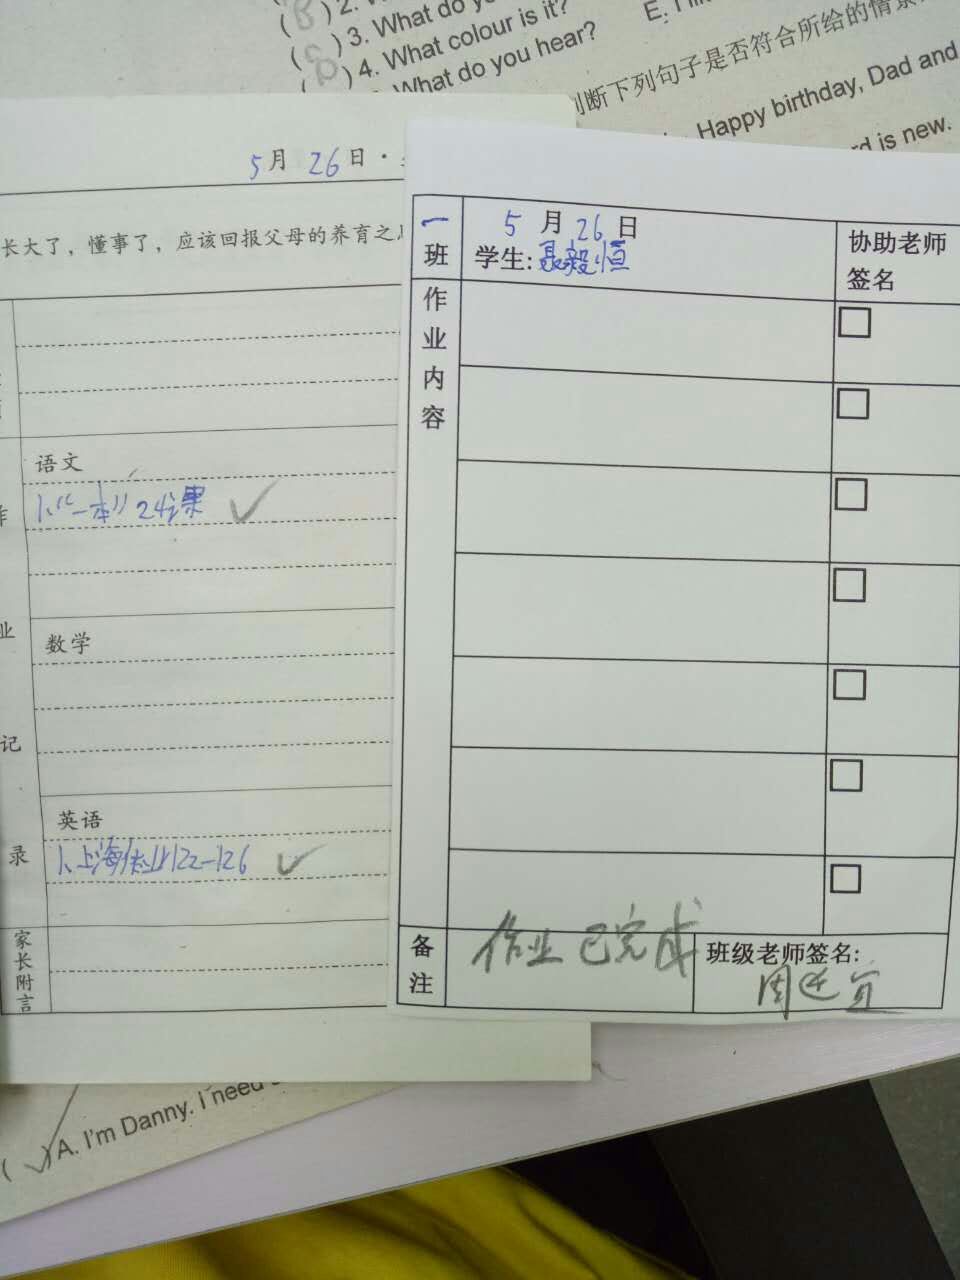 (B) 2.
( ) 3. What do yo
( ) 4. What colour is it?
What do you hear?
E. I'll
判断下列句子是否符合所给的情景
Happy birthday, Dad and
rd is new.
5月 26日·
长大了，懂事了，应该回报父母的养育之
语文
1、“一本”24课
数学
英语
1、上海作业122—126
作
业
记
录
家长附言
一班
5月26日
学生:聂毅恒
协助老师签名
作业内容
备注
作业已完成
班级老师签名:
(✓)A. I'm Danny. I need